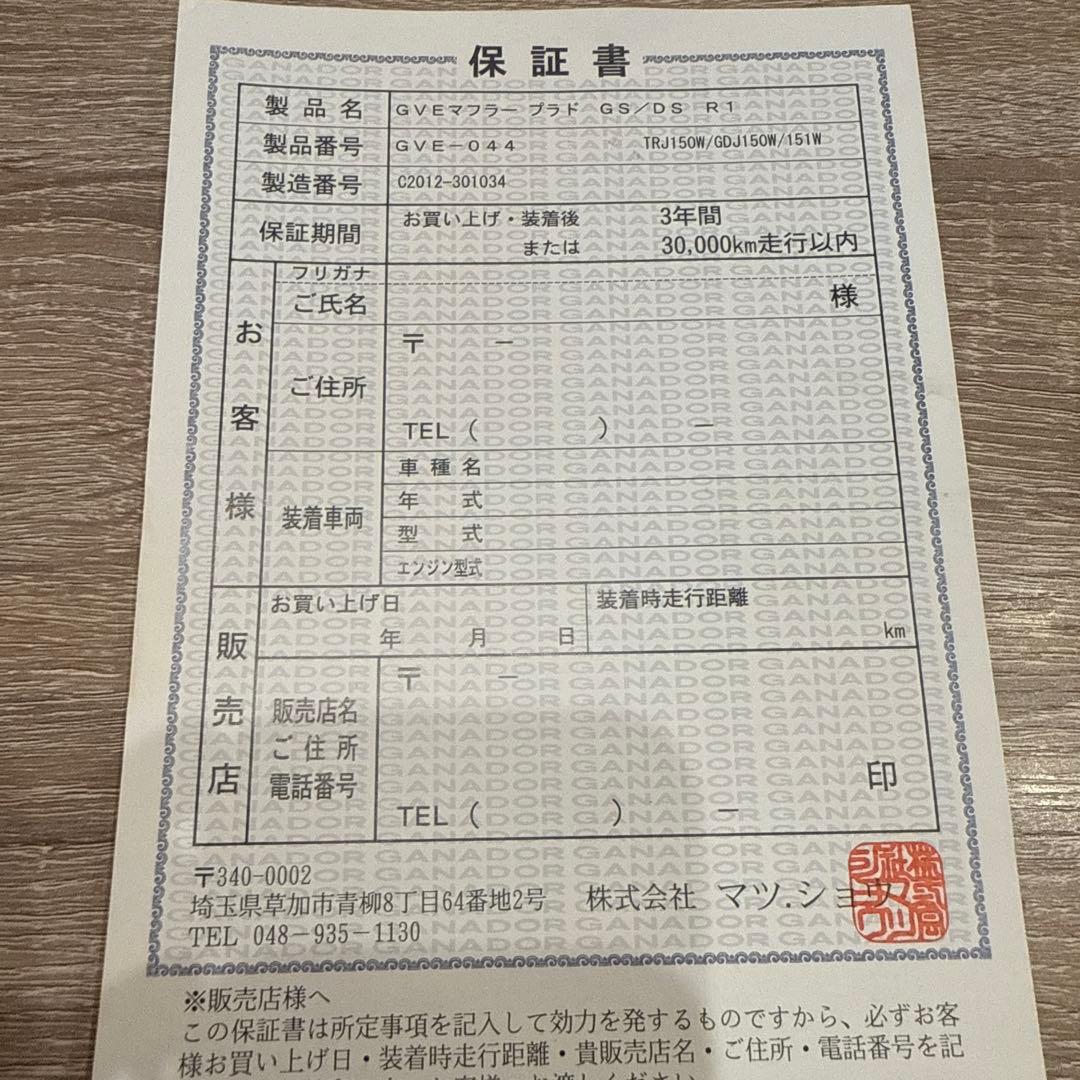 保証書
製品名 GVEマフラー プラド GS/DS R1
製品番号 GVE-044 TRJ150W/GDJ150W/151W
製造番号 C2012-301034
保証期間 お買い上げ・装着後 3年間
または 30,000km走行以内
お客様
フリガナ
ご氏名 様
ご住所 〒 -
TEL ( ) -
装着車両
車種名
年式
型式
エンジン型式
販売店
お買い上げ日 装着時走行距離
年 月 日 km
〒 -
販売店名
ご住所
電話番号 印
TEL ( ) -
〒340-0002
埼玉県草加市青柳8丁目64番地2号 株式会社 マツ.ショウ
TEL 048-935-1130
※販売店様へ
この保証書は所定事項を記入して効力を発するものですから、必ずお客
様お買い上げ日・装着時走行距離・貴販売店名・ご住所・電話番号を記